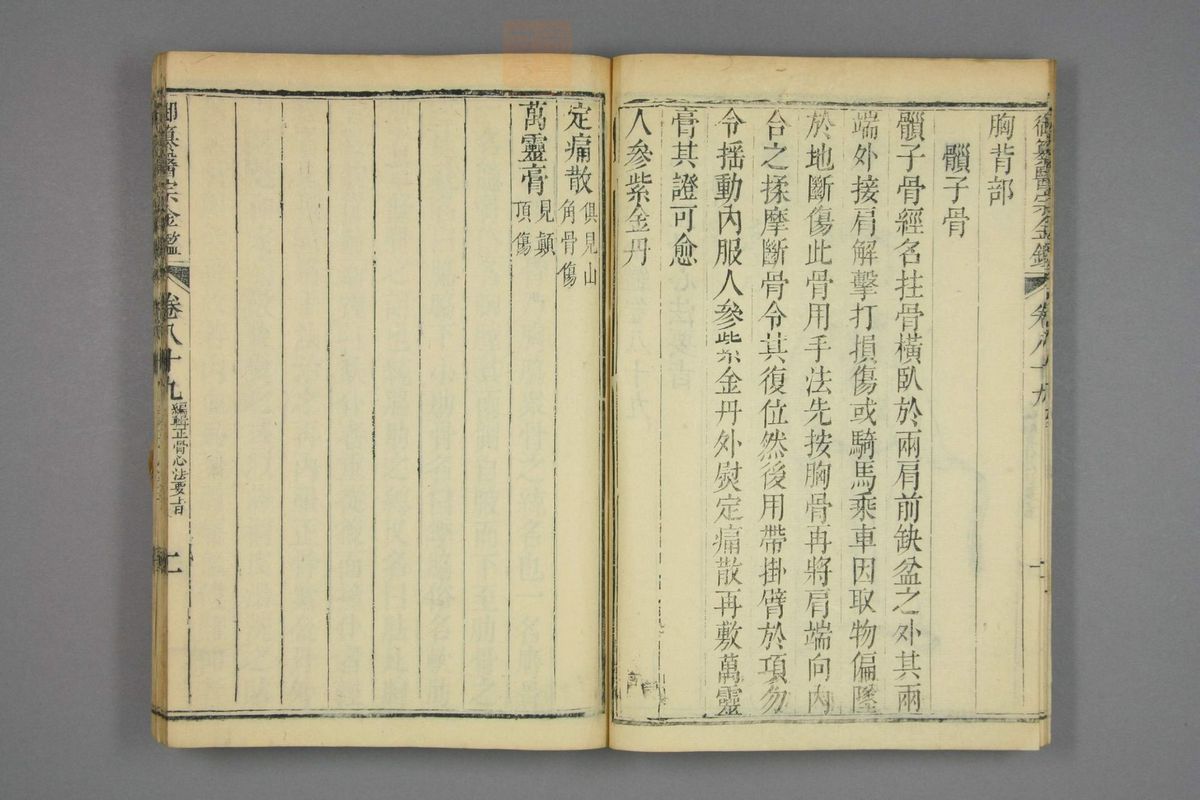 御纂醫宗金鑑
卷八十九
胸背部
髃子骨
髃子骨經名拄骨橫臥於兩肩前缺盆之外其兩
端外接肩解擊打損傷或騎馬乘車因取物偏墜
於地斷傷此骨用手法先按胸骨再將肩端向內
合之揉摩斷骨令其復位然後用帶掛臂於項勿
令搖動內服人參紫金丹外熨定痛散再敷萬靈
膏其證可愈
人參紫金丹
定痛散俱見山
角骨傷
萬靈膏見顛
頂傷
御纂醫宗金鑑
卷八十九
編輯正骨心法要旨